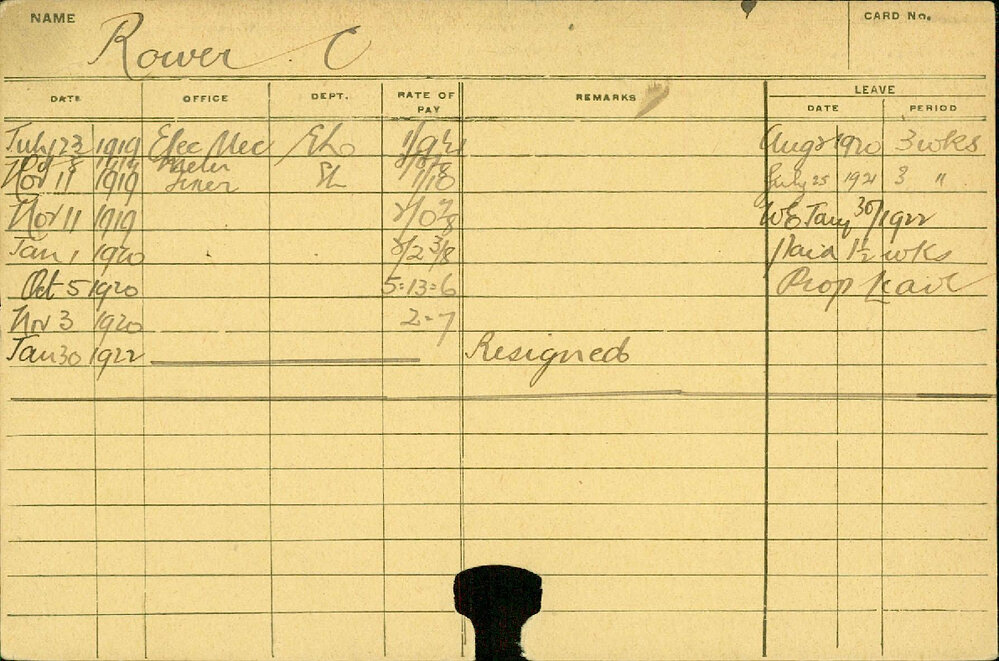 NAME
CARD No.
Rower C
DATE OFFICE DEPT. RATE OF PAY REMARKS LEAVE
DATE PERIOD
July 23 1919 Elec Mec 1/9 Aug 2 1920 3 wks
Nov 11 1919 1/10 July 25 1921 3 "
Nov 11 1919 2/0 WE Jany 30/1922
Jan 1 1920 2/2 3/8 Paid 1½ wks
Oct 5 1920 5=13=6 Prop Leave
Nov 3 1920 2=7
Jan 30 1922 Resigned